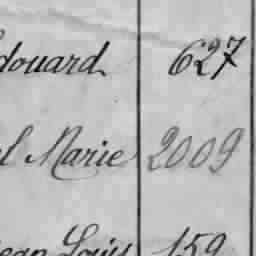 douard 627
l Marie 2009
ean Louis 159